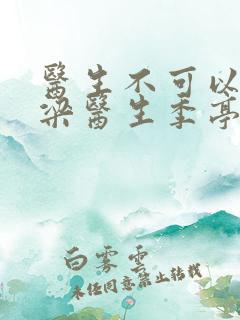 醫生不可以
梁醫生季亭
白雾雲
未经同意禁止转载